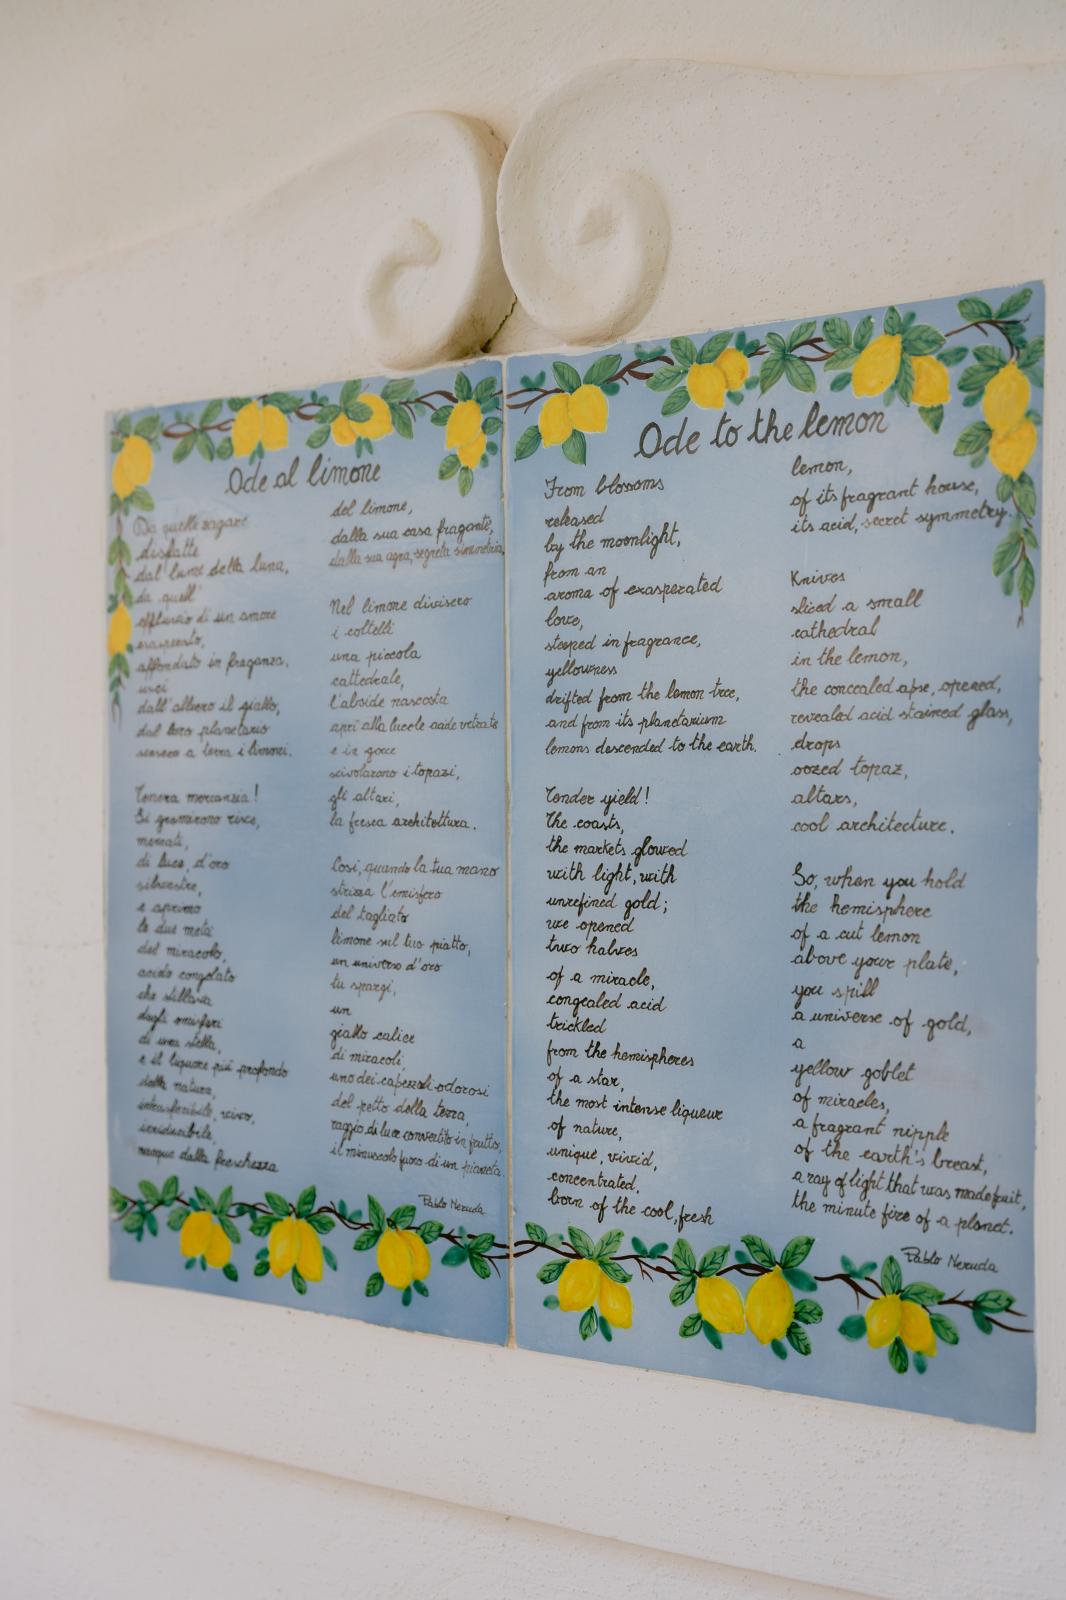 Ode al limone
Da quelle zagare
disfatte
dal lume della luna,
da quell'
effluvio di un amore
esasperato,
affondato in fraganza,
uscì
dall'albero il giallo,
dal loro planetario
scesero a terra i limoni.
Tenera mercanzia!
Si gremirono rive,
mercati,
di luce, d'oro
silvestre,
e aprimo
le due metà
del miracolo,
acido congelato
che stillava
dagli emisferi
di una stella,
e il liquore più profondo
della natura,
intrasferibile, vivo,
irriducibile,
nacque dalla freschezza
del limone,
dalla sua casa fragante,
dalla sua agra, segreta simmetria.
Nel limone divisero
i coltelli
una piccola
cattedrale,
l'abside nascosta
aprì alla luce le acide vetrate
e in gocce
scivolarono i topazi,
gli altari,
la fresca architettura.
Così, quando la tua mano
strizza l'emisfero
del tagliato
limone sul tuo piatto,
un universo d'oro
tu spargi,
un
giallo calice
di miracoli,
uno dei capezzoli odorosi
del petto della terra,
raggio di luce convertito in frutto,
il minuscolo fuoco di un pianeta.
Pablo Neruda
Ode to the lemon
From blossoms
released
by the moonlight,
from an
aroma of exasperated
love,
steeped in fragrance,
yellowness
drifted from the lemon tree,
and from its planetarium
lemons descended to the earth.
Tender yield!
The coasts,
the markets glowed
with light, with
unrefined gold;
we opened
two halves
of a miracle,
congealed acid
trickled
from the hemispheres
of a star,
the most intense liqueur
of nature,
unique, vivid,
concentrated,
born of the cool, fresh
lemon,
of its fragrant house,
its acid, secret symmetry.
Knives
sliced a small
cathedral
in the lemon,
the concealed apse, opened,
revealed acid stained glass,
drops
oozed topaz,
altars,
cool architecture.
So, when you hold
the hemisphere
of a cut lemon
above your plate,
you spill
a universe of gold,
a
yellow goblet
of miracles,
a fragrant nipple
of the earth's breast,
a ray of light that was made fruit,
the minute fire of a planet.
Pablo Neruda